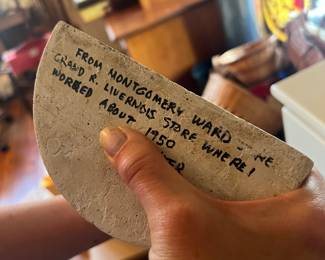 FROM MONTGOMERY WARD - NE
GRAND R. LIVERNOIS STORE WHERE I
WORKED ABOUT 1950